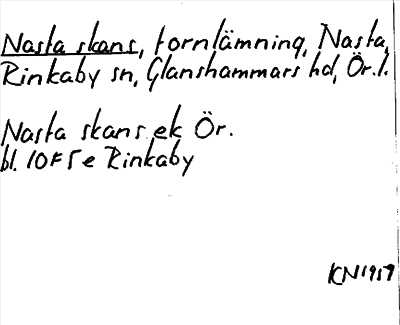 Nasta skans, fornlämning, Nasta,
Rinkaby sn, Glanshammars hd, Ör. l.
Nasta skans ek Ör.
bl. 10F5e Rinkaby
KN 1959